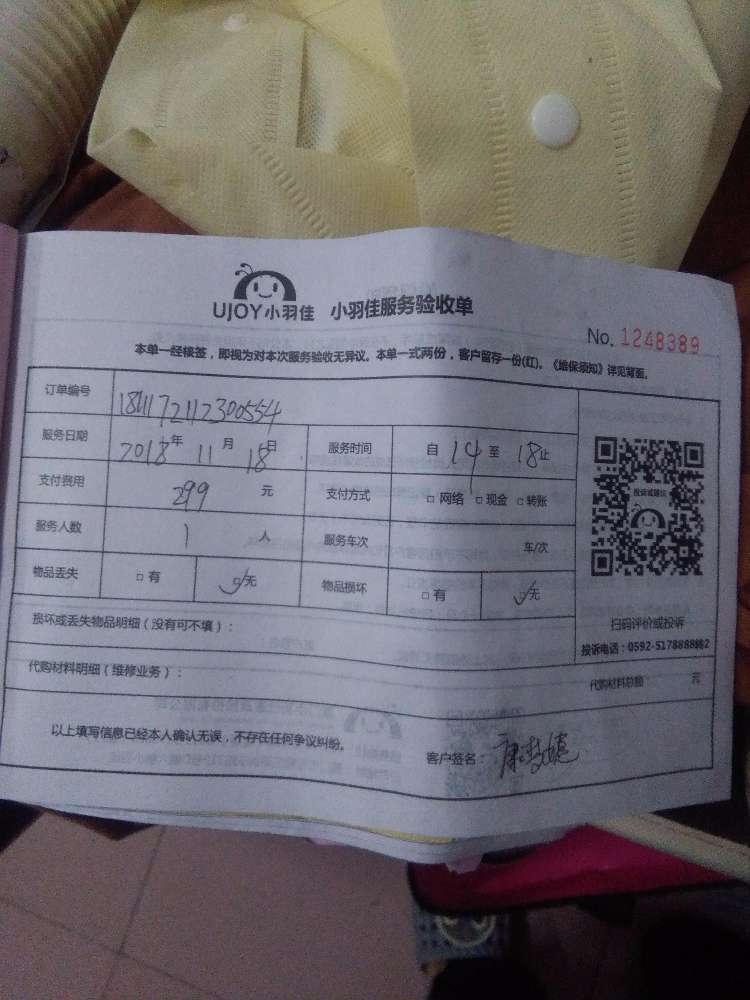 UJOY小羽佳 小羽佳服务验收单
No. 1248389
本单一经接签，即视为对本次服务验收无异议。本单一式两份，客户留存一份(红)。《维保须知》详见背面。
订单编号 1811172112300554
服务日期 2018年 11月 18日 服务时间 自 14 至 18止
支付费用 299 元 支付方式 □ 网络 □ 现金 □ 转账
服务人数 1 人 服务车次 车/次
物品丢失 □ 有 □无 物品损坏 □ 有 □无
投诉或建议
扫码评价或投诉
损坏或丢失物品明细（没有可不填）：
投诉电话：0592-5178888862
代购材料明细（维修业务）： 代购材料总额 元
以上填写信息已经本人确认无误，不存在任何争议纠纷。 客户签名：